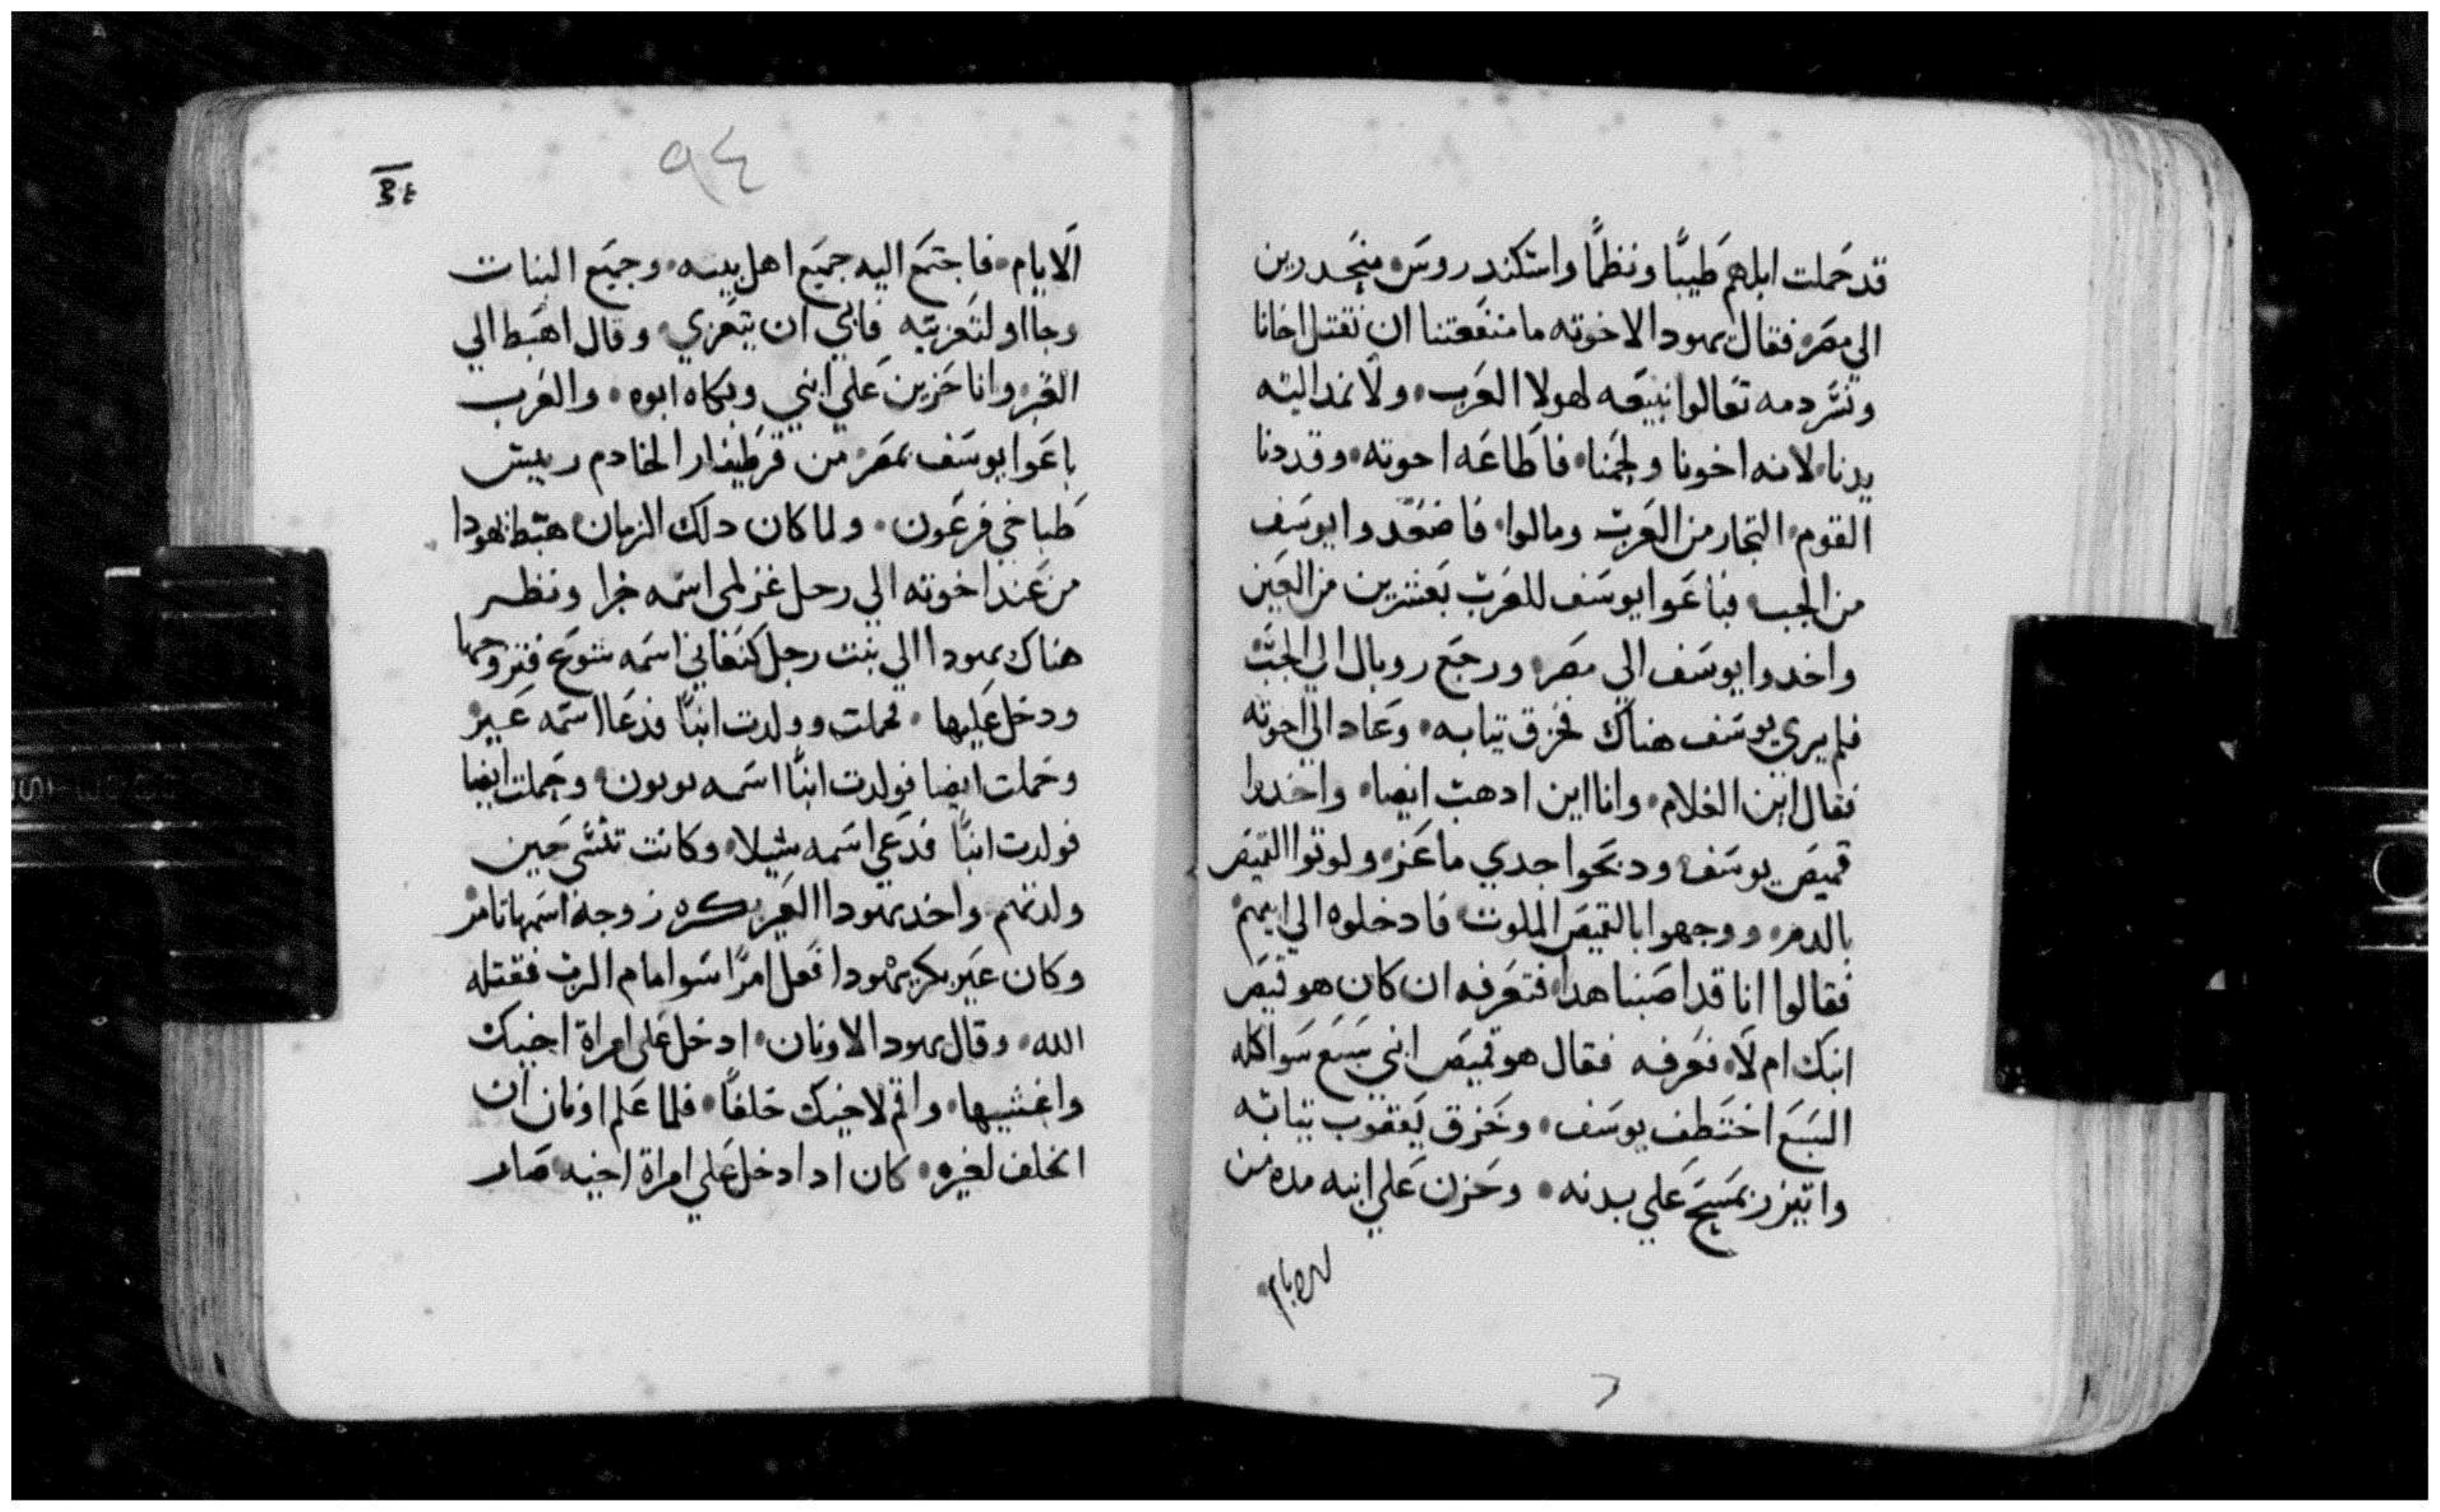 قد حملت ابلهم طيبًا ونظمًا واستكندروس منحدرين
الي مصر فقال يهودا لاخوته ما منفعتنا ان نقتل اخانا
ونسر دمه تعالوا نبيعه لهولا العرب ولا نمد اليه
يدنا لانه اخونا ولحمنا فاطاعه احوته وقد دنا
القوم التجار من العرب ومالوا فاصعدوا يوسف
من الجب فباعوا يوسف للعرب بعشرين من العين
واخدوا يوسف الي مصر ورجع روبال الي الجب
فلم يري يوسف هناك فخرق تيابه وعاد الي اخوته
فقال اين الغلام وانا اين ادهب ايضا واخدوا
قميص يوسف ودبحوا جدي ماعز ولوتوا القميص
بالدم ووجهوا بالقميص الملوت فادخلوه الي ابيهم
فقالوا انا قد اصبنا هدا فتعرفه ان كان هو قميص
ابنك ام لا فعرفه فقال هو قميص ابني سبع سوا اكله
السبع اختطف يوسف وخرق يعقوب تيابه
واتيزر بمسح علي بدنه وحزن علي ابنه مده من
الايام
٩٤
الايام فاجتمع اليه جميع اهل بيته وجميع البنات
وجااوا لتعزيته فابي ان يتعزي وقال اهبط الي
القبر وانا حزين علي ابني وبكاه ابوه والعرب
باعوا يوسف بمصر من قرطيفار الخادم رييس
طباخي فرعون ولما كان دلك الزمان هبط يهودا
من عند اخوته الي رحل غزلمي اسمه خرا ونظر
هناك يهودا الي بنت رجل كنعاني اسمه شوع فتزوجها
ودخل عليها فحملت وولدت ابنًا فدعا اسمه عير
وحملت ايضا فولدت ابنًا اسمه يويون وحملت ايضا
فولدت ابنًا فدعي اسمه شيلا وكانت تكنني حين
ولدتهم واخد يهودا العير بكره زوجة اسمها تامر
وكان عير بكر يهودا فعل امرًا سوا امام الرب فقتله
الله وقال يهودا لاونان ادخل علي امراة اخيك
واغشيها واقم لاخيك خلفًا فلما علم اونان ان
الخلف لغيره كان ادا دخل علي امراة اخيه صار